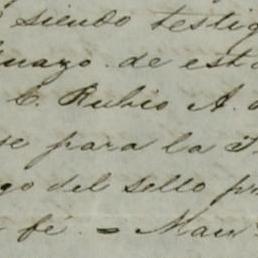 siendo testig
de est
C. Rubio A.
se para la
go del sello p
fé. = Man